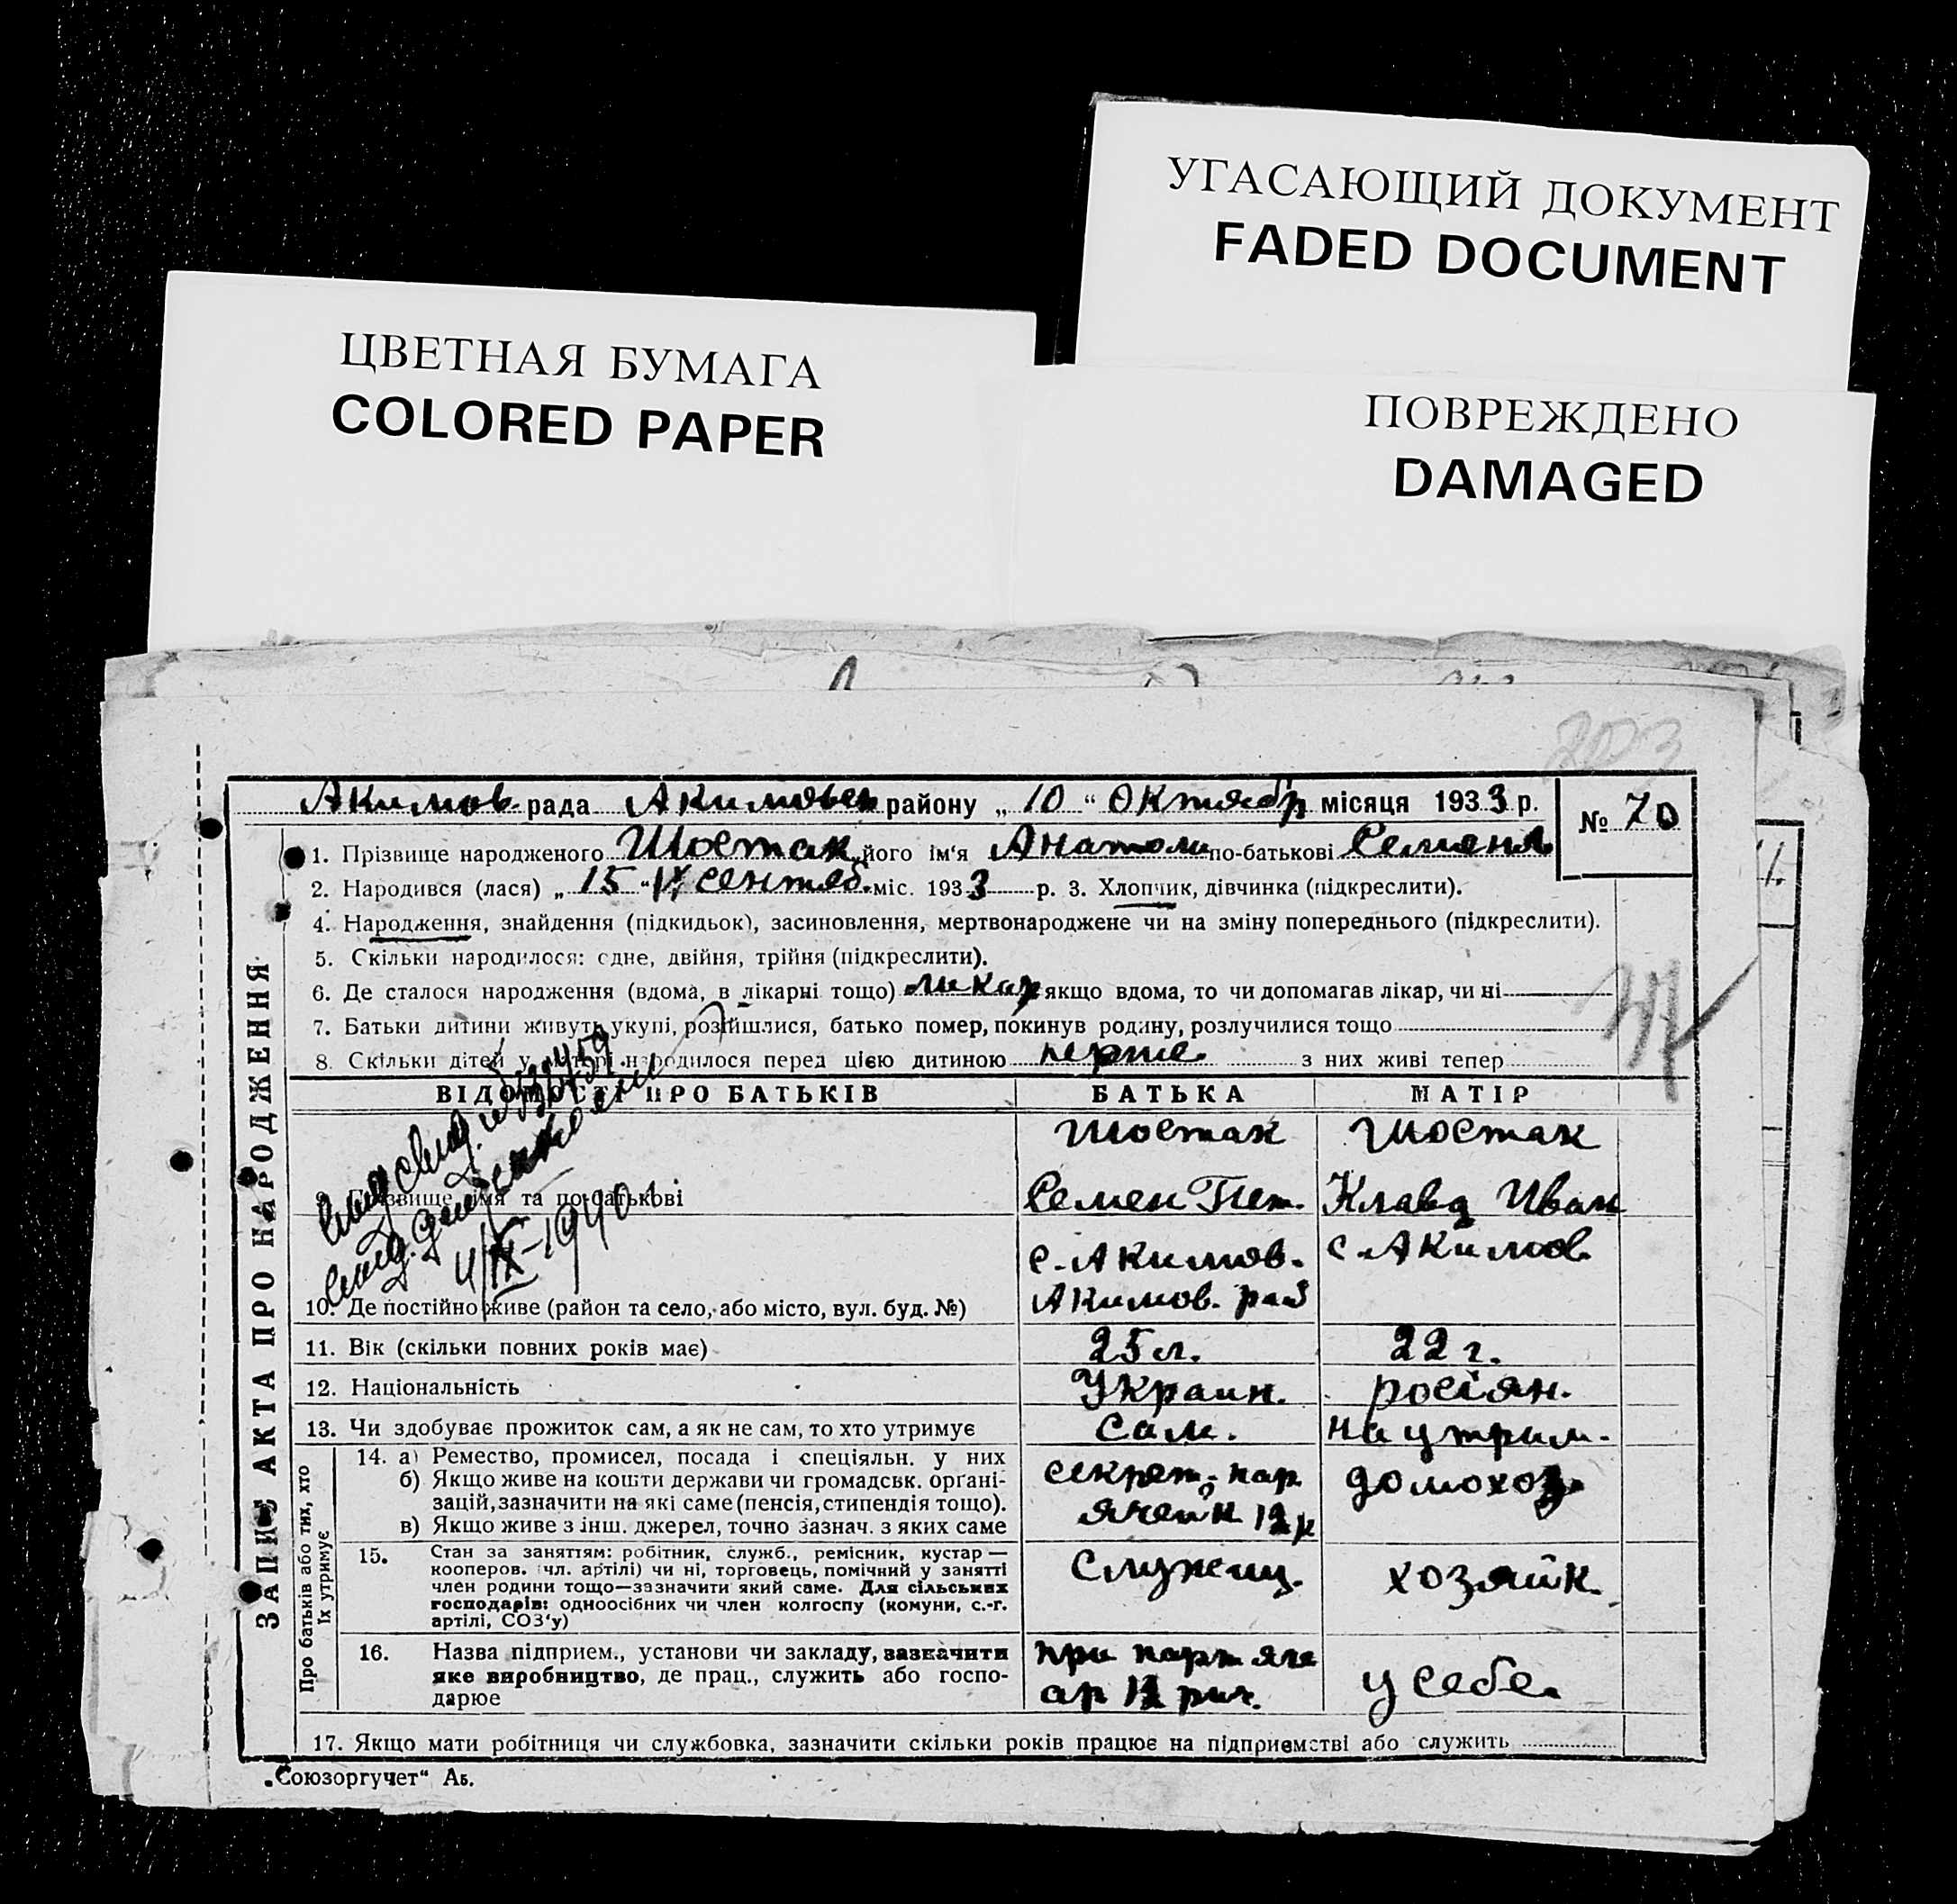 УГАСАЮЩИЙ ДОКУМЕНТ
FADED DOCUMENT
ЦВЕТНАЯ БУМАГА
COLORED PAPER
ПОВРЕЖДЕНО
DAMAGED
ЗАПИС АКТА ПРО НАРОДЖЕННЯ
Акимов. рада Акимовск району „10“ Октябр місяця 1933 р.
№ 70
1. Прізвище народженого Шостак його ім'я Анатоли по-батькові Семенов
2. Народився (лася) „15“ IX сентяб. міс. 1933 р. 3. Хлопчик, дівчинка (підкреслити).
4. Народження, знайдення (підкидьок), засиновлення, мертвонароджене чи на зміну попереднього (підкреслити).
5. Скільки народилося: одне, двійня, трійня (підкреслити).
6. Де сталося народження (вдома, в лікарні тощо) ликар якщо вдома, то чи допомагав лікар, чи ні
7. Батьки дитини живуть укупі, розійшлися, батько помер, покинув родину, розлучилися тощо
8. Скільки дітей у матері народилося перед цією дитиною перше. з них живі тепер
ВІДОМОСТІ ПРО БАТЬКІВ БАТЬКА МАТІР
Шостак Шостак
9. Прізвище, імя та по-батькові Семен Пет. Клавд Иван
4/IX-1940
с. Акимов. с. Акимов
10. Де постійно живе (район та село, або місто, вул. буд. №) Акимов.
11. Вік (скільки повних років має) 25 л. 22 г.
12. Національність Украин. росіян.
13. Чи здобуває прожиток сам, а як не сам, то хто утримує Сам. на утрим.
Про батьків або тих, хто їх утримує
14. а) Ремество, промисел, посада і спеціяльн. у них
б) Якщо живе на кошти держави чи громадськ. організацій, зазначити на які саме (пенсія, стипендія тощо).
в) Якщо живе з інш. джерел, точно зазнач. з яких саме
секрет. пар домохоз.
15. Стан за заняттям: робітник, служб., ремісник, кустар—
кооперов. (чл. артілі) чи ні, торговець, помічний у занятті
член родини тощо—зазначити який саме. Для сільських
господарів: одноосібних чи член колгоспу (комуни, с.-г.
артілі, СОЗ'у)
Служащ. хозяйк.
16. Назва підприєм., установи чи закладу, зазначити
яке виробництво, де прац., служить або госпо-
дарює
при парт у себе.
17. Якщо мати робітниця чи службовка, зазначити скільки років працює на підприємстві або служить
„Союзоргучет“ Аб.